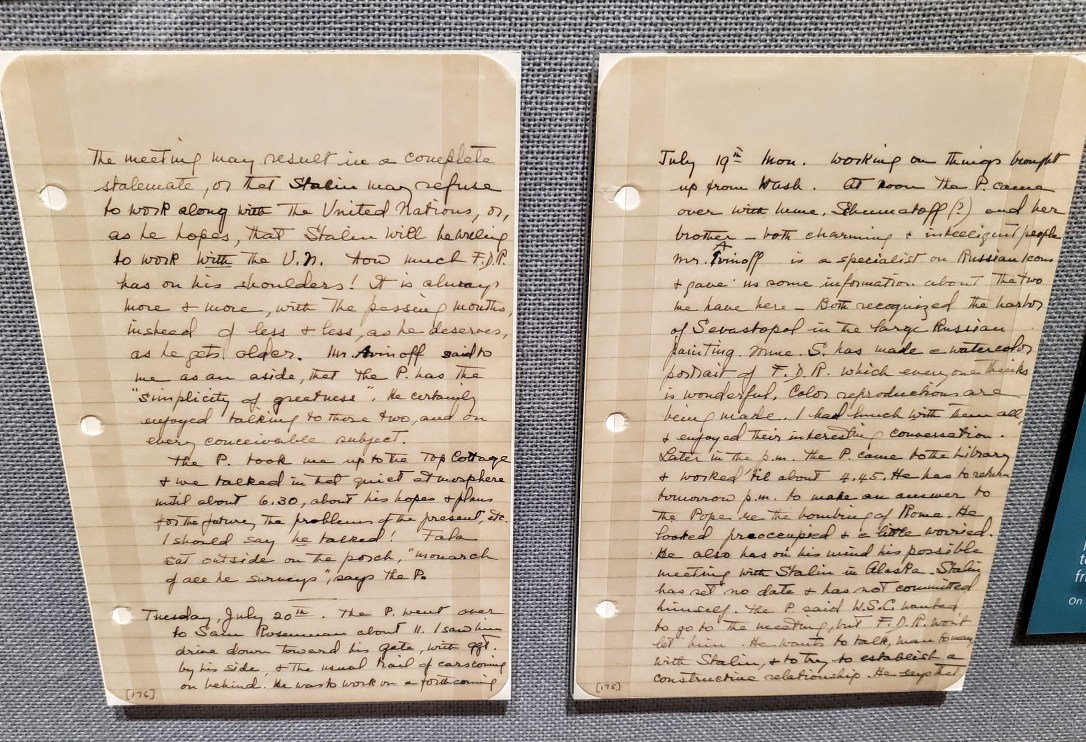 The meeting may result in a complete
stalemate, or that Stalin may refuse
to work along with the United Nations, or,
as he hopes, that Stalin will be willing
to work with the U.N. How much F.D.R.
has on his shoulders! It is always
more & more, with the passing months,
instead of less & less, as he deserves,
as he gets older. Mr. Avinoff said to
me as an aside, that the P. has the
"simplicity of greatness". He certainly
enjoyed talking to those two, and on
every conceivable subject.
The P. took me up to the Top Cottage
& we talked in that quiet atmosphere
until about 6.30, about his hopes & plans
for the future, the problems of the present, etc.
I should say he talked! Fala
sat outside on the porch, "monarch
of all he surveys", says the P.
Tuesday, July 20th. The P. went over
to Sam Rosenman about 11. I saw him
drive down toward his gate, with
by his side, & the usual trail of cars coming
on behind. He was to work on a forthcoming
[176]
July 19th Mon. Working on things brought
up from Wash. At noon the P. came
over with Mme. Shoumatoff (?) and her
brother – both charming & intelligent people
Mr. Avinoff is a specialist on Russian Icons
& gave us some information about the two
we have here – Both recognized the harbor
of Sevastopol in the large Russian
painting. Mme. S. has made a watercolor
portrait of F.D.R. which everyone thinks
is wonderful. Color reproductions are
being made. I had lunch with them all
& enjoyed their interesting conversation.
Later in the p.m. the P. came to the Library
& worked 'til about 4.45. He has to return
tomorrow p.m. to make an answer to
the Pope re the bombing of Rome. He
looked preoccupied & a little worried.
He also has on his mind his possible
meeting with Stalin in Alaska. Stalin
has set no date & has not committed
himself. The P. said W.S.C. wanted
to go to the meeting, but F.D.R. won't
let him. He wants to talk, man to man,
with Stalin, & to try to establish a
constructive relationship. He says that
[175]
On